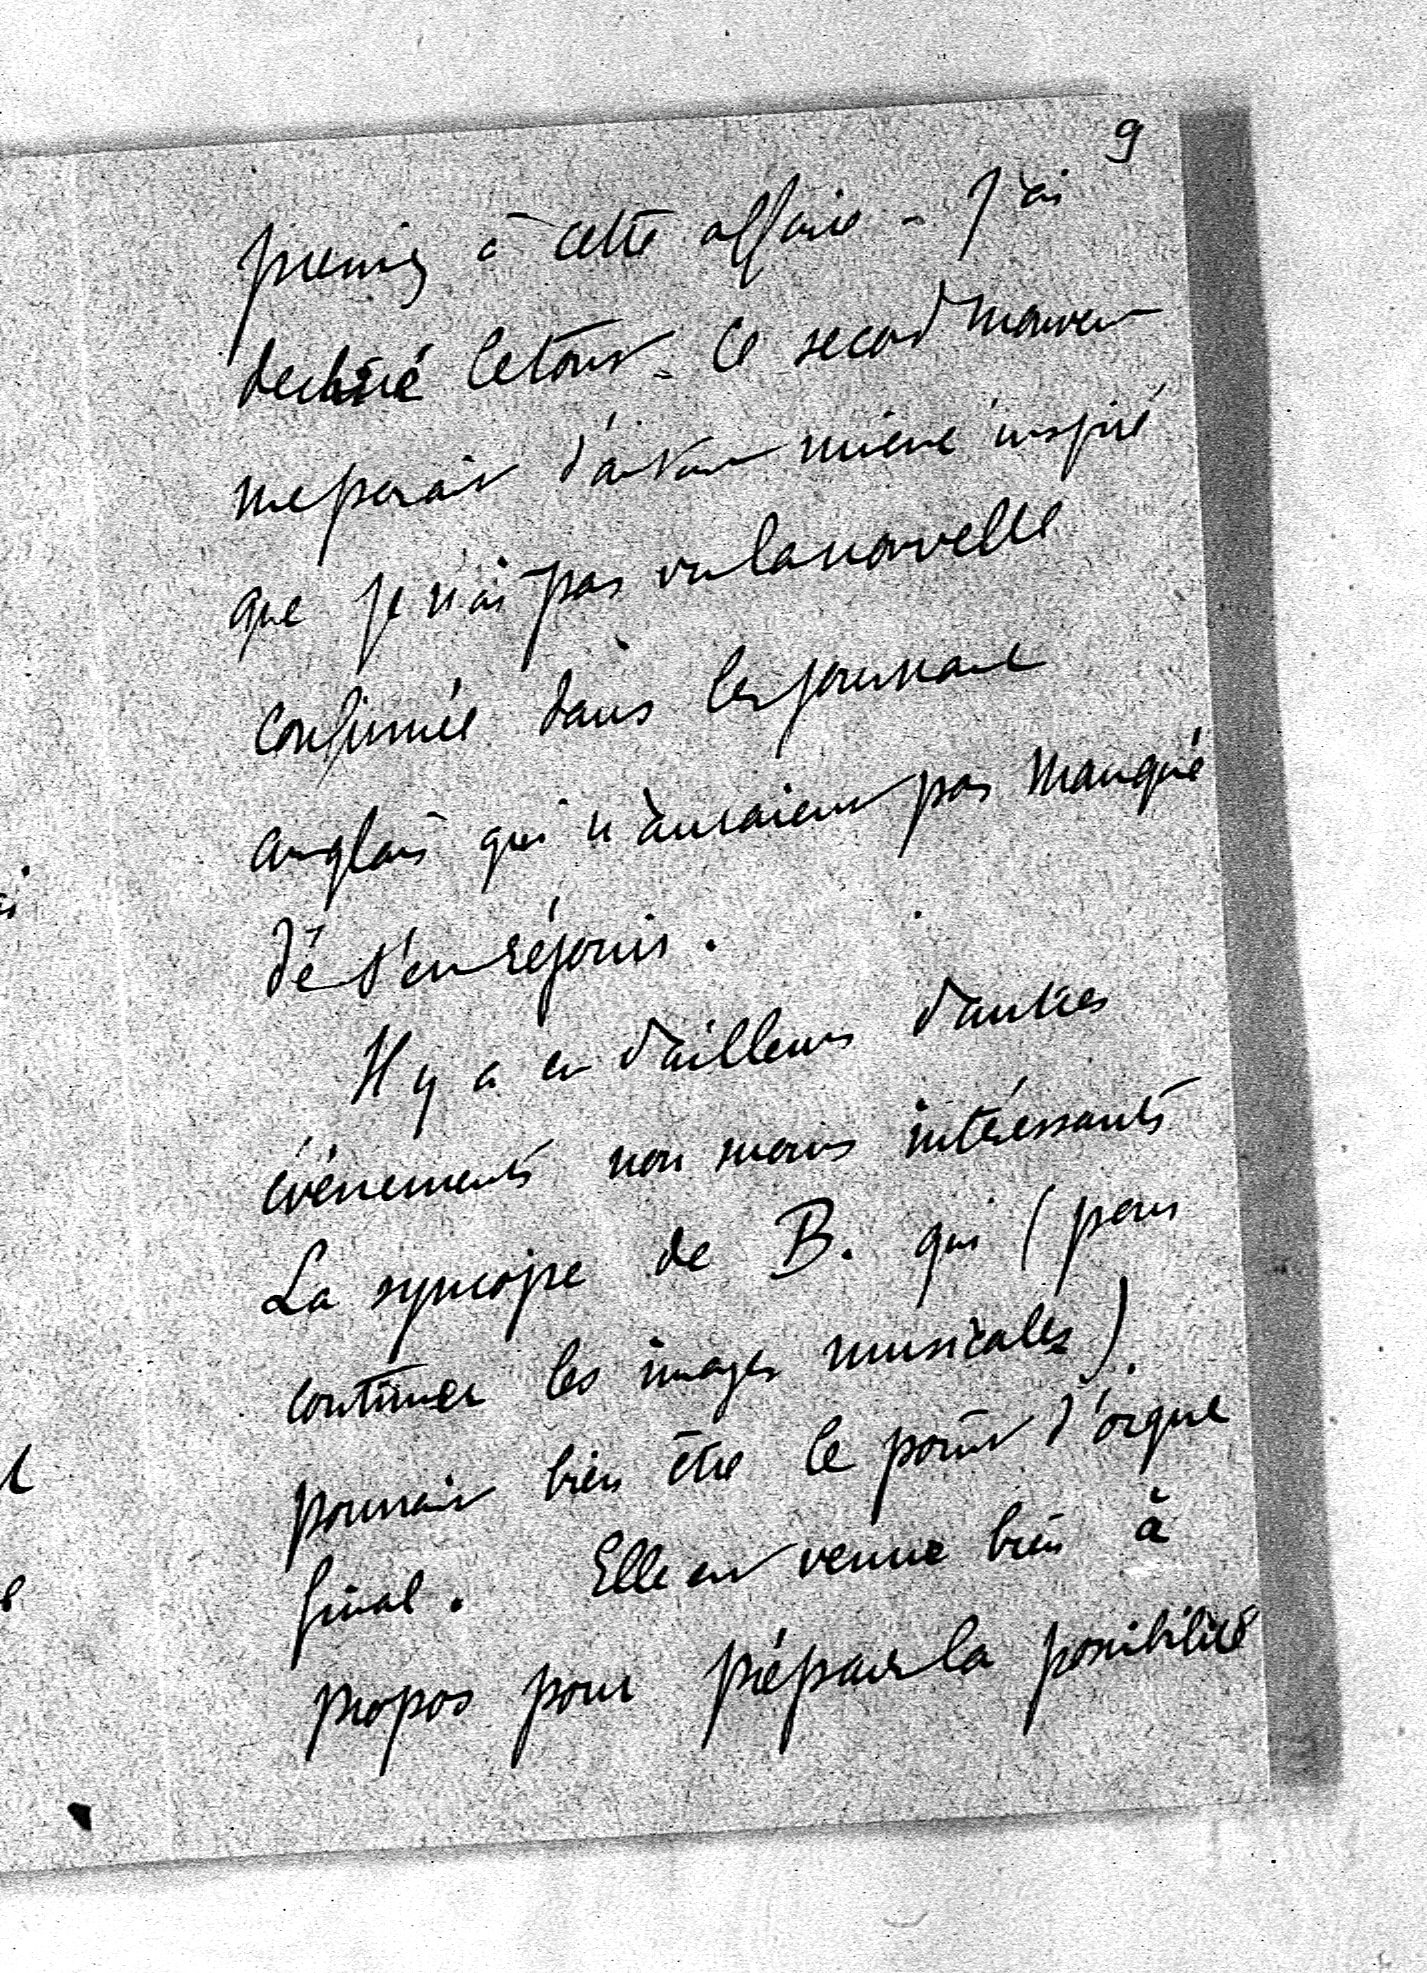 9
premier à cette affaire - J'ai
déchiré le tout. Ce second mouvent
me paraît d'autant mieux inspiré
que je n'ai pas vu la nouvelle
confirmée dans les journaux
anglais qui n'auraient pas manqué
de s'en réjouir.
Il y a eu d'ailleurs d'autres
événements non moins intéressants
La syncope de B. qui (pour
continuer les images musicales)
pourrait bien être le point d'orgue
final. Elle est venue bien à
propos pour préparer la possibilité